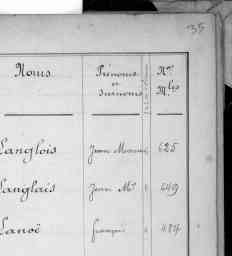 35
Noms Prénoms et surnoms Nos Mles
Langlois Jean 625
Langlais Jean Me 449
Lanoë François 484